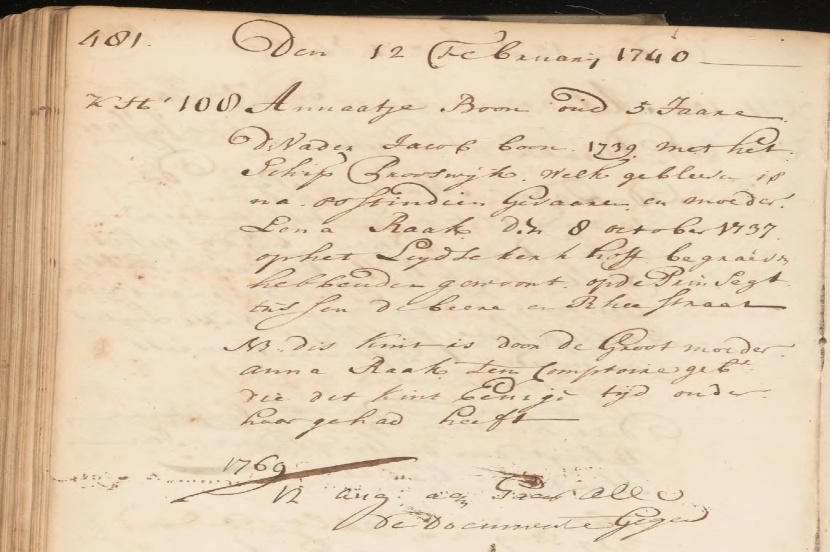 481. Den 12 Februarij 1740
108 Annaatje Boon oud 5 Jaare
D: Vader Jacob boon. 1739. met het
Schip Rrooswijk. welk gebleeve is
na. oostindien Gevaare. en moeder.
Lena Raak. den 8 october 1737.
op het Leydse kerk hoff begraven
hebbende gewoont. op de Prinsegt.
tussen de beere en Rhee straat
NB. dis kint is door de Groot moeder.
anna Raak. ten Comptoire geb.
die dit kint Eenige tijd onder.
haar gehad heeft
1769
12 aug: aan alle
de Documente Gegeven